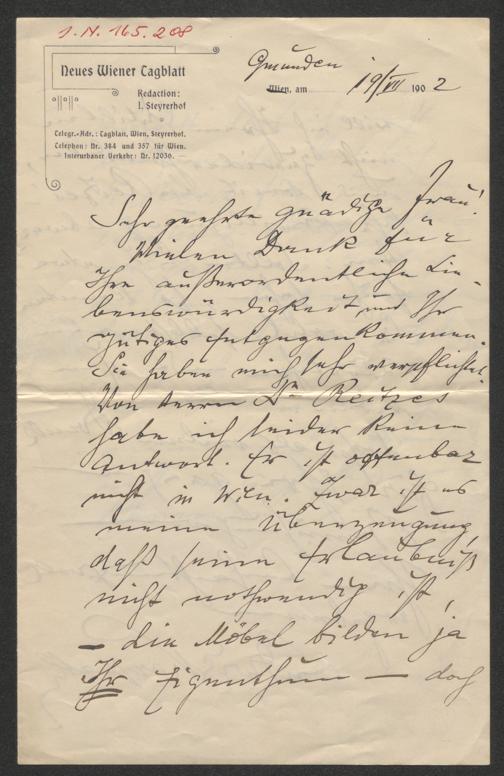 I. N. 165.208
Neues Wiener Tagblatt
Redaction:
I. Steyrerhof
Telegr.-Adr.: Tagblatt, Wien, Steyrerhof.
Telephon: Nr. 384 und 357 für Wien.
Interurbaner Verkehr: Nr. 12036.
Gmunden
Wien, am 19/VII 1902
Sehr geehrte gnädige Frau!
Vielen Dank für
Ihre außerordentliche Lie-
benswürdigkeit und Ihr
gütiges Entgegenkommen.
Sie haben mich sehr verpflichtet.
Von Herrn Dr Reitzes
habe ich leider keine
Antwort. Er ist offenbar
nicht in Wien. Zwar ist es
meine Überzeugung,
daß seine Erlaubniß
nicht nothwendig ist,
– die Möbel bilden ja
Ihr Eigenthum – doch